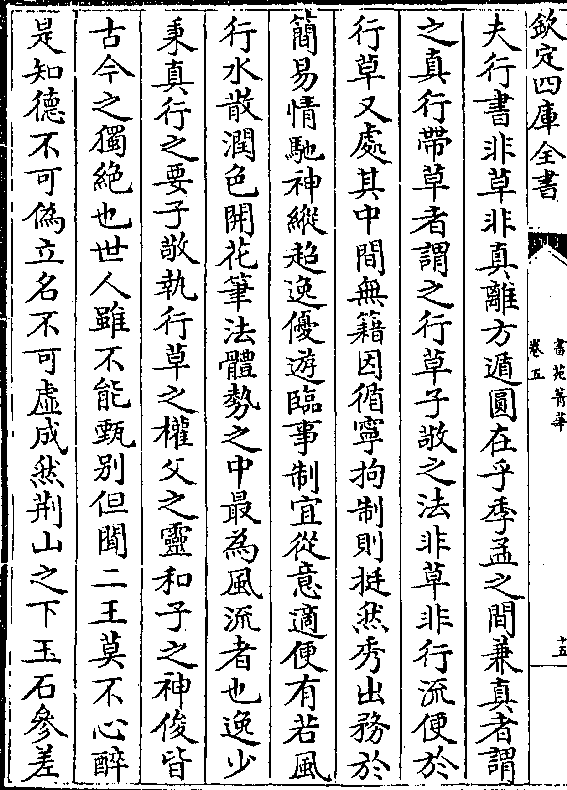 欽定四庫全書
書苑菁華
卷五
十五
夫行書非草非真離方遁圓在乎季孟之間兼真者謂
之真行帶草者謂之行草子敬之法非草非行流便於
行草又處其中間無籍因循寧拘制則挺然秀出務於
簡易情馳神縱超逸優遊臨事制宜從意適便有若風
行水散潤色開花筆法體勢之中最為風流者也逸少
秉真行之要子敬執行草之權父之靈和子之神俊皆
古今之獨絶也世人雖不能甄别但聞二王莫不心醉
是知德不可偽立名不可虛成然荆山之下玉石參差